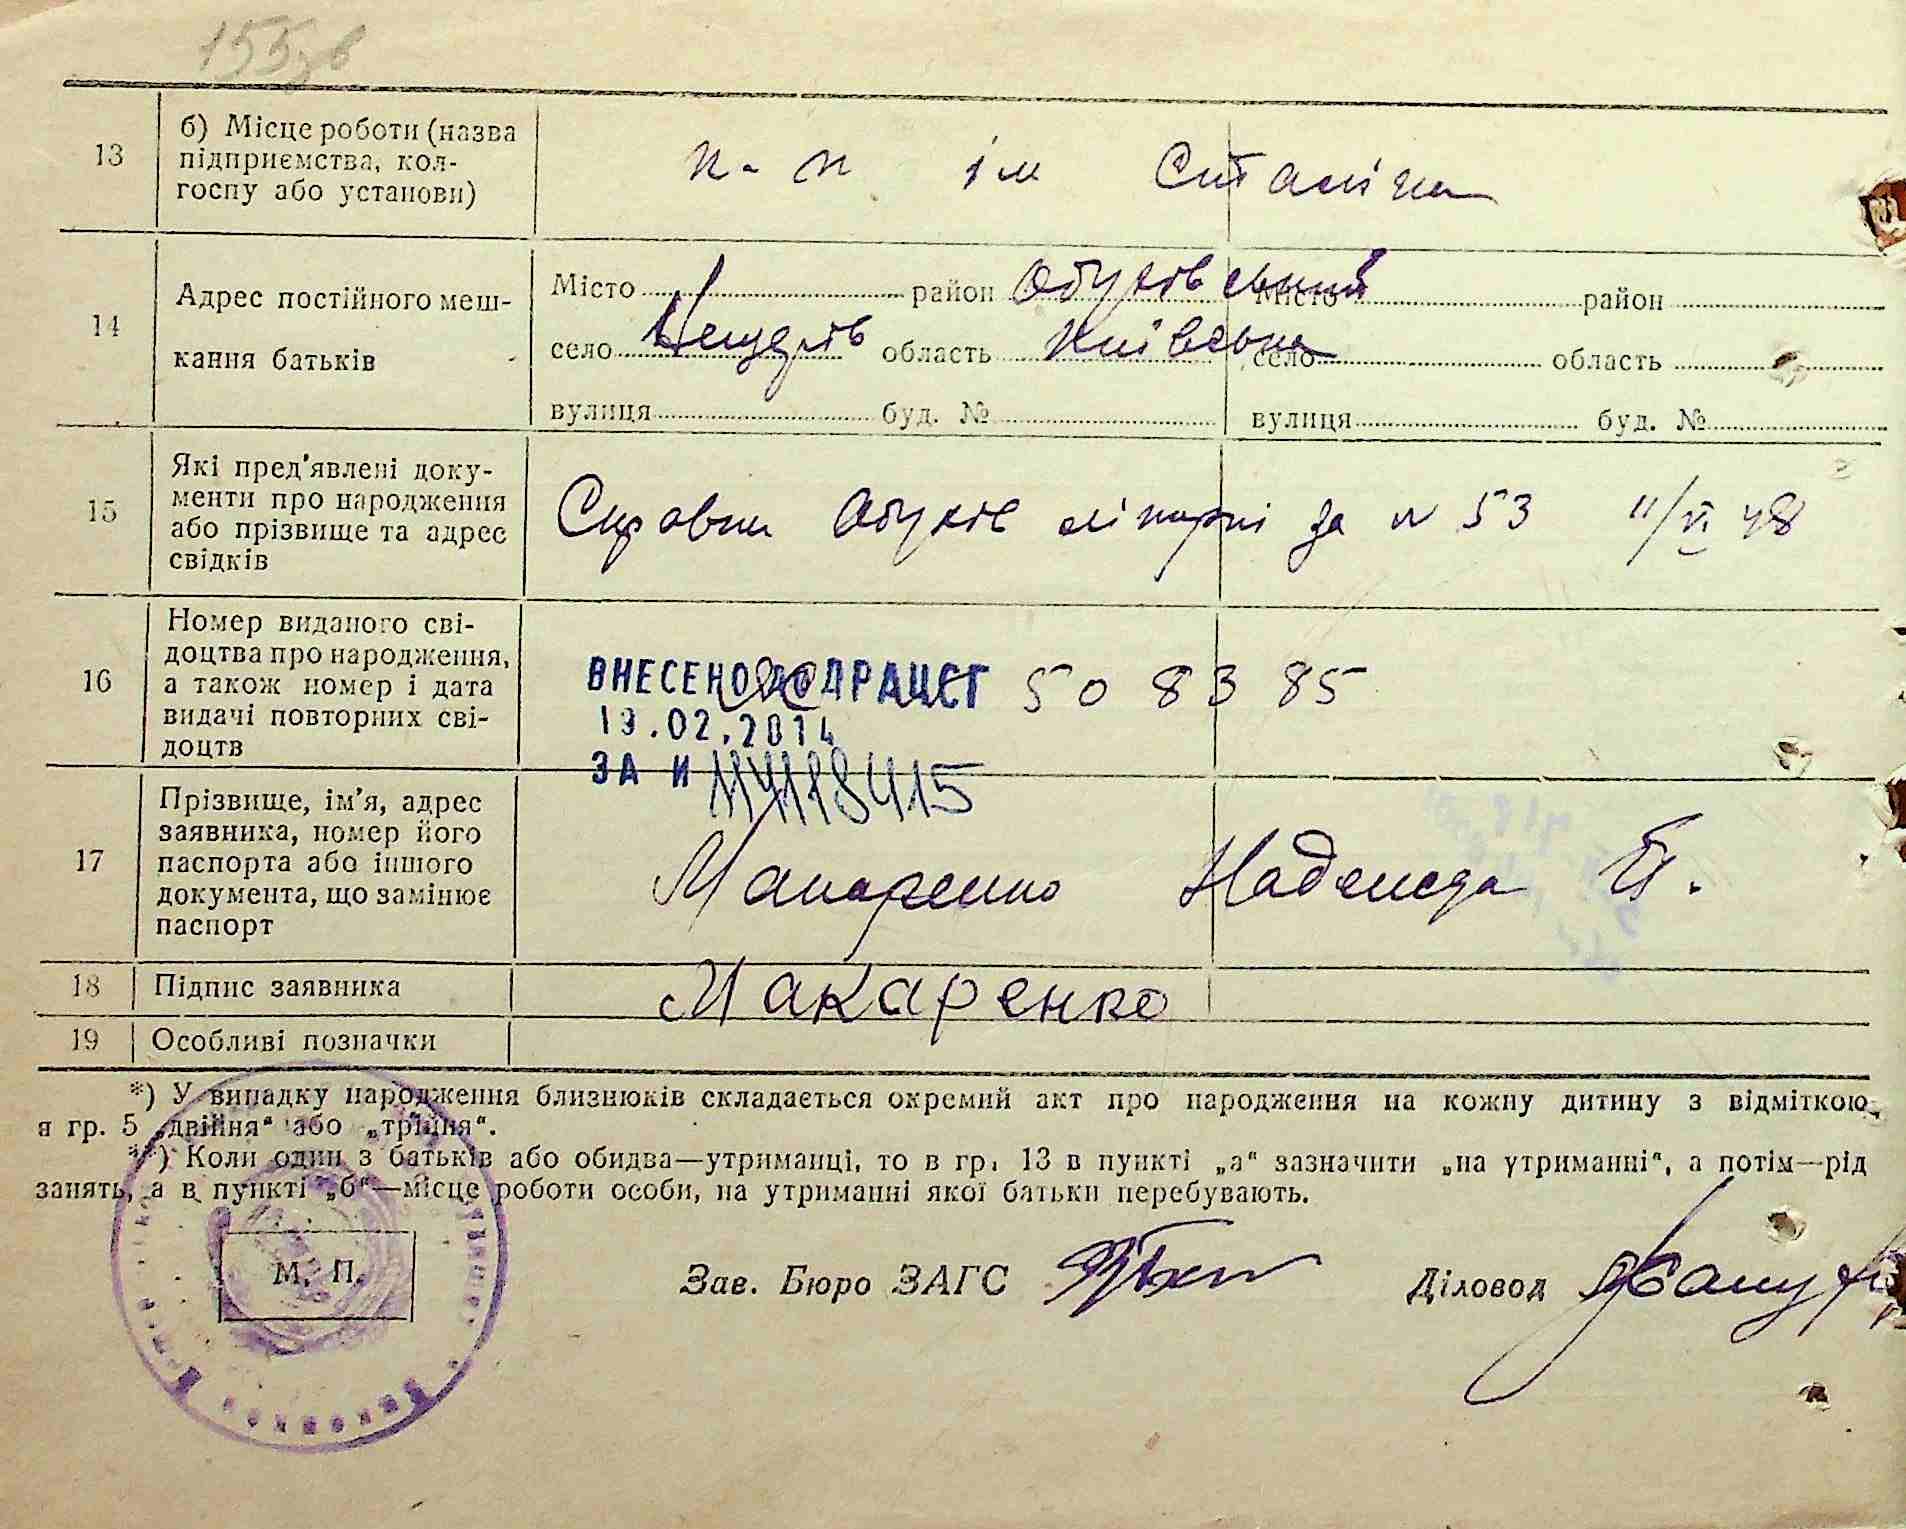 155зв
13
б) Місце роботи (назва
підприємства, кол-
госпу або установи)
к-п ім Сталіна
14
Адрес постійного меш-
кання батьків
Місто район Обухівський Місто район
село Нещерів область Київська село область
вулиця буд. № вулиця буд. №
15
Які пред'явлені доку-
менти про народження
або прізвище та адрес
свідків
Справки Обухів лікарні за N 53 11/VI 48
16
Номер виданого сві-
доцтва про народження,
а також номер і дата
видачі повторних сві-
доцтв
ВНЕСЕНО ДО ДРАЦСГ 50 83 85
19.02.2014
ЗА N
17
Прізвище, ім'я, адрес
заявника, номер його
паспорта або іншого
документа, що замінює
паспорт
Макаренко Надежда П.
18 Підпис заявника
Макаренко
19 Особливі позначки
*) У випадку народження близнюків складається окремий акт про народження на кожну дитину з відміткою
я гр. 5 „двійня“ або „трійня“.
**) Коли один з батьків або обидва—утриманці, то в гр. 13 в пункті „а“ зазначити „на утриманні“, а потім—рід
занять, а в пункті „б“—місце роботи особи, на утриманні якої батьки перебувають.
М. П.
Зав. Бюро ЗАГС
Діловод